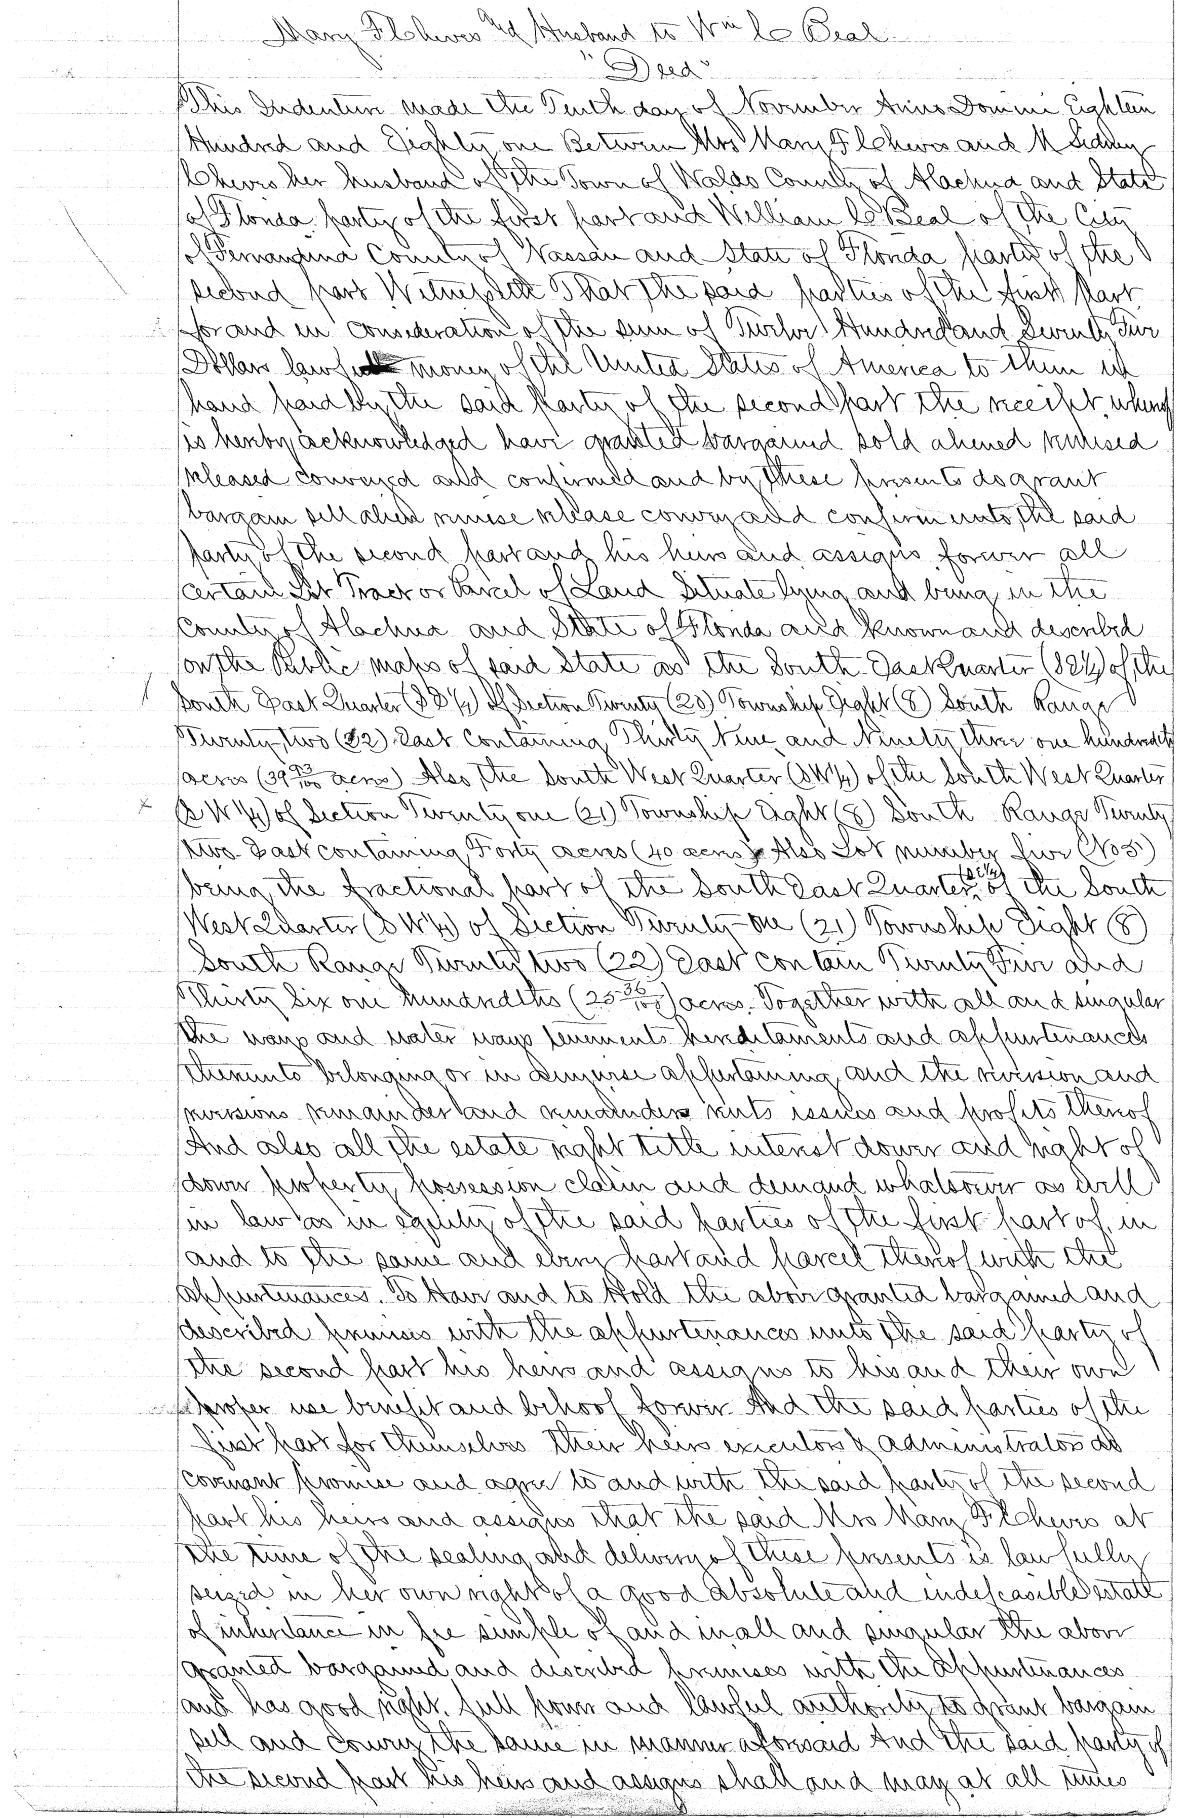 Mary F Cheves and Husband to Wm C Beal
"Deed"
This Indenture made the Tenth day of November Anno Domini Eighteen
Hundred and Eighty one Between Mrs Mary F Cheves and M Sidney
Cheves her husband of the Town of Waldo County of Alachua and State
of Florida party of the first part and William C Beal of the City
of Fernandina County of Nassau and State of Florida party of the
second part Witnesseth That the said parties of the first part
for and in consideration of the sum of Twelve Hundred and Seventy Five
Dollars lawful money of the United States of America to them in
hand paid by the said party of the second part the receipt whereof
is hereby acknowledged have granted bargained sold aliened remised
released conveyed and confirmed and by these presents do grant
bargain sell alien remise release convey and confirm unto the said
party of the second part and his heirs and assigns forever all
certain Lot Tract or Parcel of Land Situate lying and being in the
County of Alachua and State of Florida and known and described
on the Public maps of said State as the South East Quarter (SE¼) of the
South East Quarter (SE¼) of Section Twenty (20) Township Eight (8) South Range
Twenty-two (22) East Containing Thirty Nine and Ninety three one hundredths
acres (39 93/100 acres) Also the South West Quarter (SW¼) of the South West Quarter
x (SW¼) of Section Twenty one (21) Township Eight (8) South Range Twenty
two East containing Forty acres (40 acres) Also Lot number five (No 5)
being the fractional part of the South East Quarter (SE¼) of the South
West Quarter (SW¼) of Section Twenty-one (21) Township Eight (8)
South Range Twenty two (22) East contain Twenty Five and
Thirty Six one hundredths (25 36/100) acres. Together with all and singular
the ways and water ways tenements hereditaments and appurtenances
thereunto belonging or in anywise appertaining and the revision and
revisions remainder and remainders rents issues and profits thereof
And also all the estate right title interest dower and right of
dower property possession claim and demand whatsoever as well
in law as in equity of the said parties of the first part of, in
and to the same and every part and parcel thereof with the
appurtenances. To Have and to Hold the above granted bargained and
described premises with the appurtenances unto the said party of
the second part his heirs and assigns to his and their own
proper use benefit and behoof forever And the said parties of the
first part for themselves their heirs executors & administrators do
covenant promise and agree to and with the said party of the second
part his heirs and assigns that the said Mrs Mary F Cheves at
the time of the sealing and delivery of these presents is lawfully
seized in her own right of a good absolute and indefeasible estate
of inheritance in fee simple of and in all and singular the above
granted bargained and described premises with the appurtenances
and has good right, full power and lawful authority to grant bargain
sell and convey the same in manner aforesaid And the said party of
the second part his heirs and assigns shall and may at all times